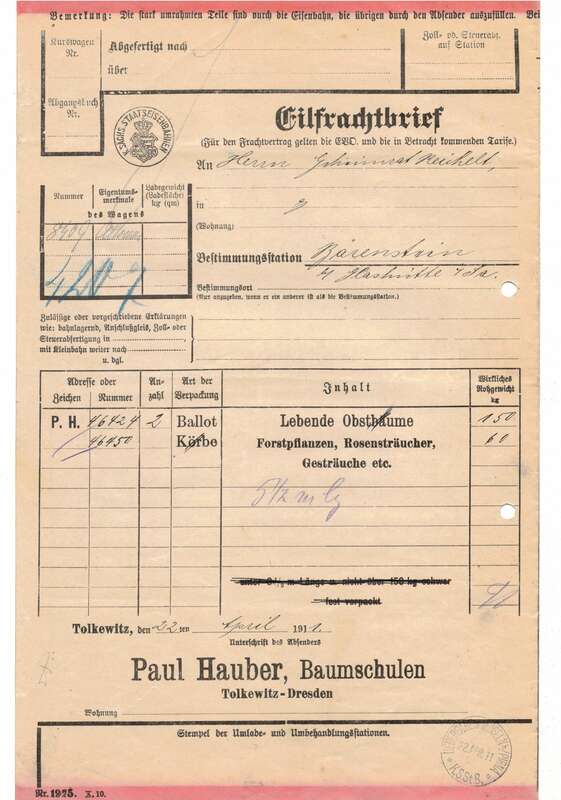 Bemerkung: Die stark umrahmten Teile sind durch die Eisenbahn, die übrigen durch den Absender auszufüllen. Bei
Kurswagen
Nr.
Abgefertigt nach
über
Zoll- od. Steuerabf.
auf Station
Abgangsbuch
Nr.
K. SÄCHS. STAATSEISENBAHNEN
Eilfrachtbrief
(Für den Frachtvertrag gelten die EVO. und die in Betracht kommenden Tarife.)
An Herrn
in
(Wohnung)
Nummer
Eigentums-
merkmale
Ladegewicht
(Ladefläche)
kg (qm)
des Wagens
4207
Bestimmungsstation Bärenstein
Bestimmungsort
(Nur anzugeben, wenn er ein anderer ist als die Bestimmungsstation.)
Zulässige oder vorgeschriebene Erklärungen
wie: bahnlagernd, Anschlußgleis, Zoll- oder
Steuerabfertigung in
mit Kleinbahn weiter nach
u. dgl.
Adresse oder
Zeichen Nummer
An-
zahl
Art der
Verpackung
Inhalt
Wirkliches
Rohgewicht
kg
P. H. 46424 2 Ballot Lebende Obstbäume 150
46450 Körbe Forstpflanzen, Rosensträucher, 60
Gesträuche etc.
unter 6½ m Länge u. nicht über 150 kg schwer
fest verpackt
Tolkewitz, den 22ten April 1911.
Unterschrift des Absenders
Paul Hauber, Baumschulen
Tolkewitz-Dresden
Wohnung
Stempel der Umlade- und Umbehandlungsstationen.
K.S.St.B.
Nr. 1925. X. 10.